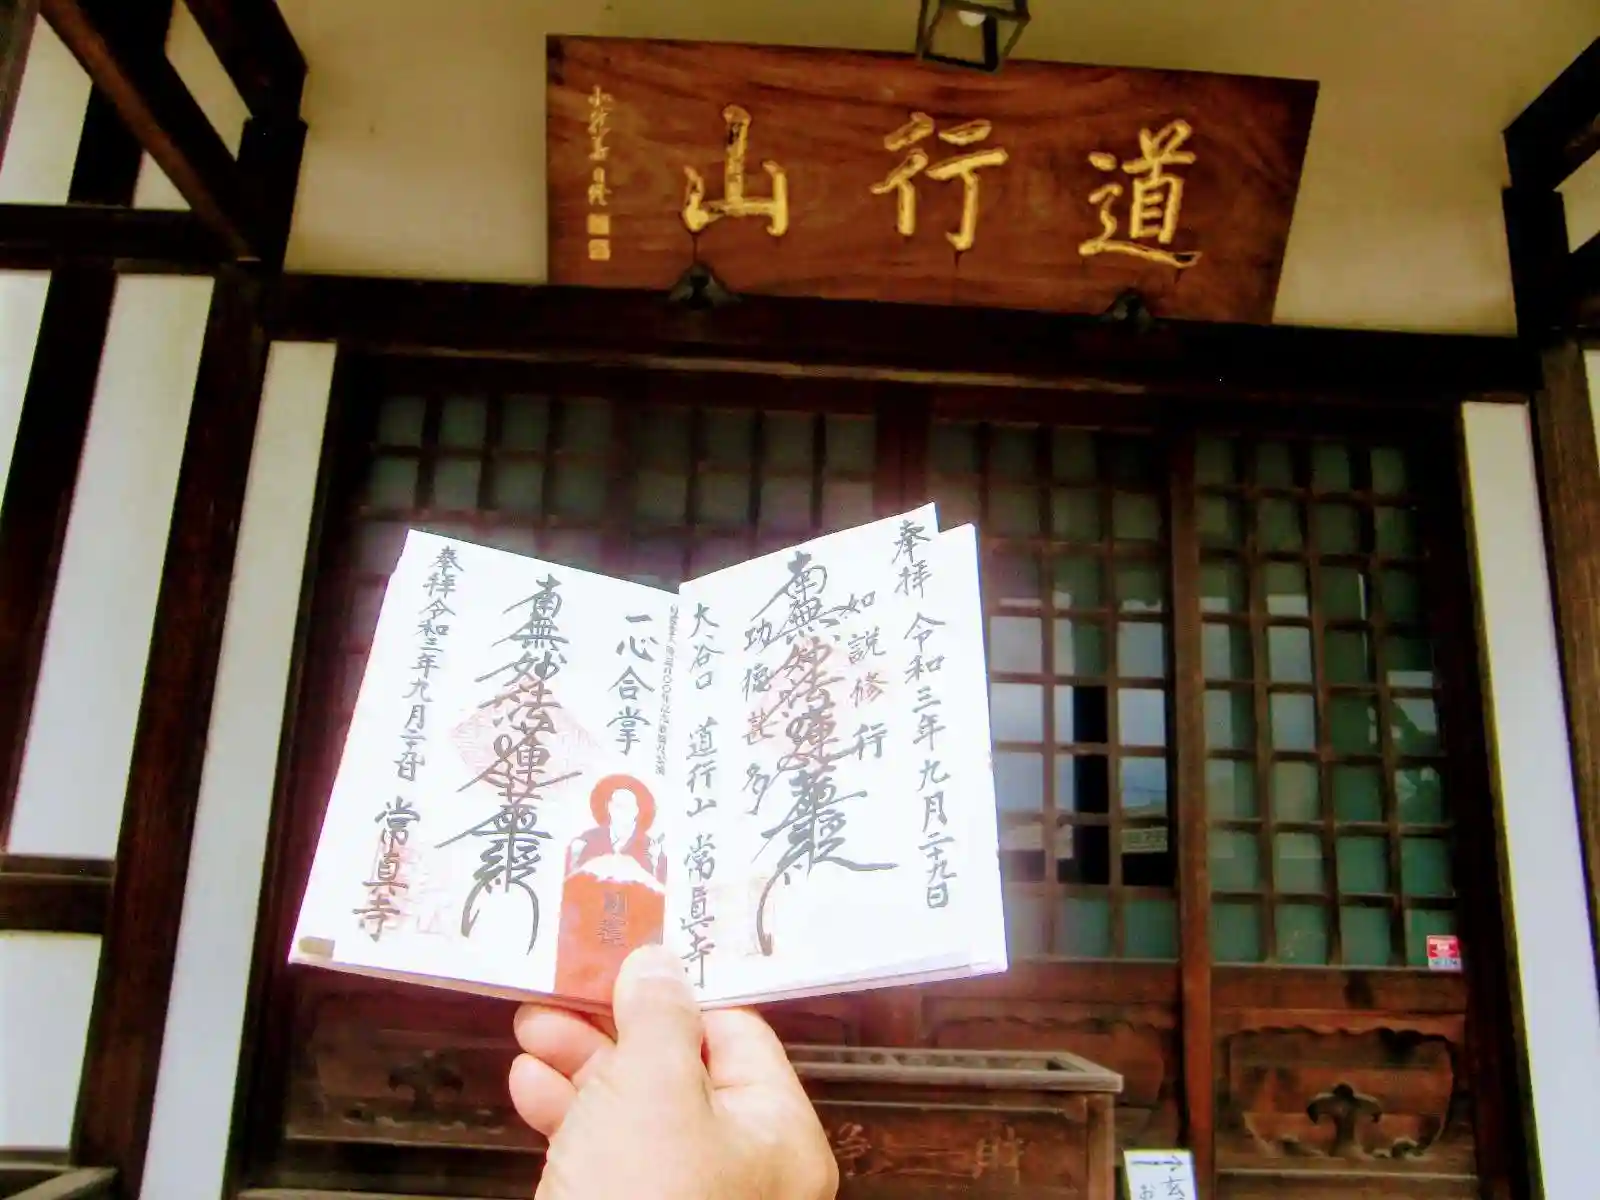 山行道
奉拝 令和三年九月二十九日
如説修行
南無妙法蓮華経
功徳甚多
大谷口 道行山 常真寺
一心合掌
南無妙法蓮華経
奉拝 令和三年九月二十九日
常真寺
浄財
玄
お